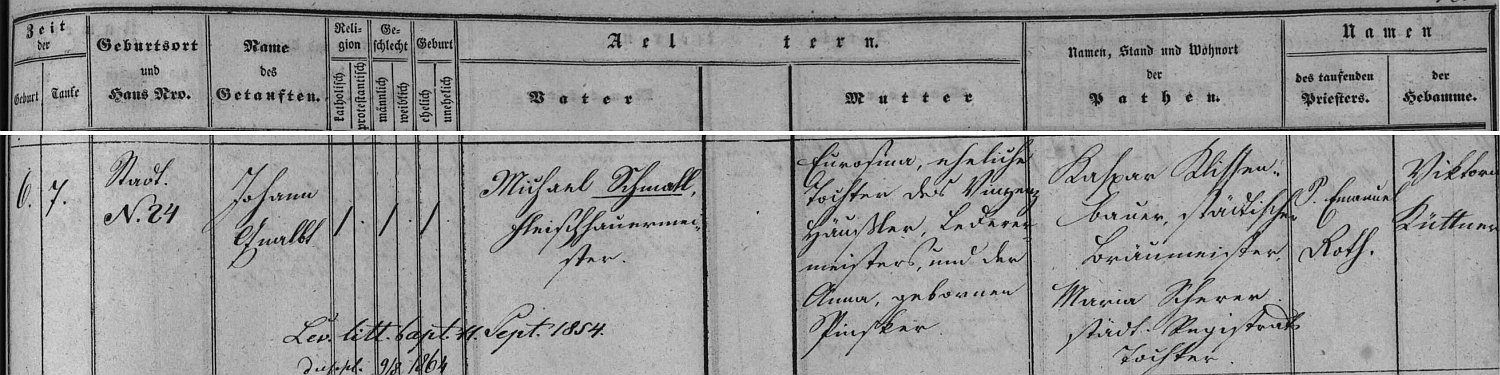 Zeit
der
Geburt
Taufe
Geburtsort
und
Haus Nro.
Name
des
Getauften.
Reli-
gion
katholisch
protestantisch
Ge-
schlecht
männlich
weiblich
Geburt
ehelich
unehelich
Aeltern.
Vater
Mutter
Namen, Stand und Wohnort
der
Pathen.
Namen
des taufenden
Priesters.
der
Hebamme.
6.
7.
Stadt.
N. 24
Johann
/.
/.
/.
Michael Schmatl,
Fleischhauermei-
ster.
Eurosina, eheliche
Tochter des Vinzenz
Häußler, Lederer-
meisters, und der
Anna, gebornen
Pinsker
Kaspar Klissen-
bauer, städtischer
Bräumeister.
Maria Scherer
städt. Registrat
Tochter.
P. Emanue
Roth.
Viktori
Küttner
Lev. litt. bapt. 11. Sept. 1854.
dupl. 9/8 1864